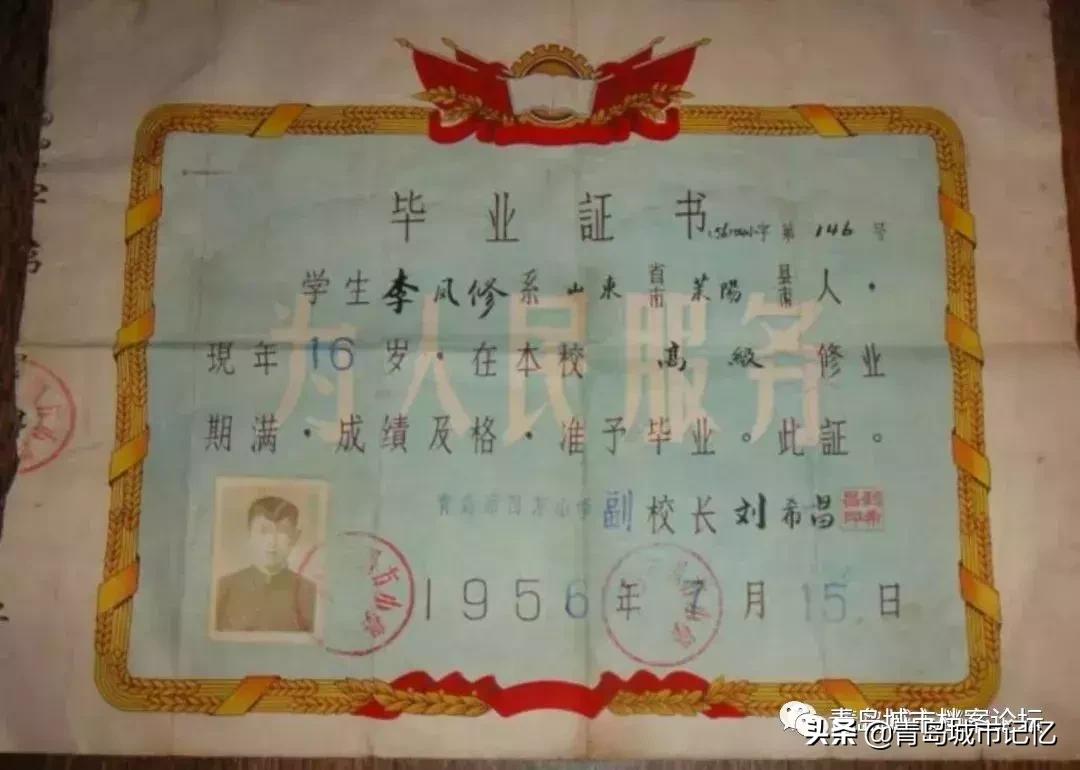 毕业証书
第 146 号
学生李凤修系山东省市莱陽县市人·
为人民服务
現年16岁·在本校高級修业
期满·成績及格·准予毕业。此証。
青島市四方小学 副校长刘希昌
刘希昌印
1956年7月15日
青岛城市档案论坛
头条 @青岛城市记忆